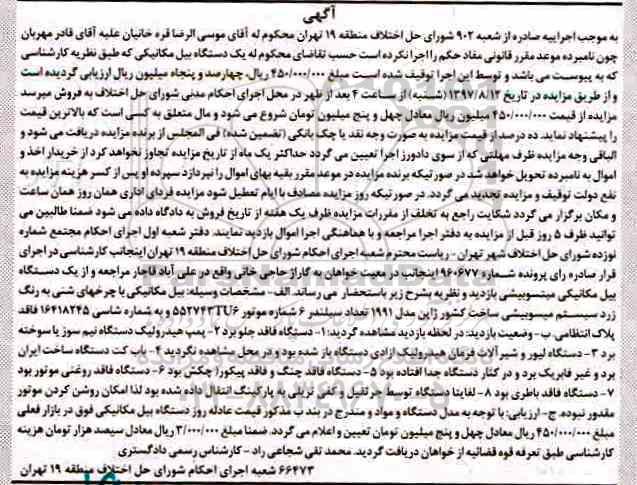 آگهی
به موجب اجراییه صادره از شعبه ۹۰۲ شورای حل اختلاف منطقه ۱۹ تهران محکوم له آقای موسی الرضا قره خانیان علیه آقای قادر مهربان
چون نامبرده موعد مقرر قانونی مفاد حکم را اجرا نکرده است حسب تقاضای محکوم له یک دستگاه بیل مکانیکی که طبق نظریه کارشناسی
که به پیوست می باشد و توسط این اجرا توقیف شده است مبلغ ۴۵۰/۰۰۰/۰۰۰ ریال، چهارصد و پنجاه میلیون ریال ارزیابی گردیده است
و از طریق مزایده در تاریخ ۱۳۹۷/۸/۱۲ (شنبه) از ساعت ۴ بعد از ظهر در محل اجرای احکام مدنی شورای حل اختلاف به فروش میرسد
مزایده از قیمت ۴۵۰/۰۰۰/۰۰۰ میلیون ریال معادل چهل و پنج میلیون تومان شروع می شود و مال متعلق به کسی است که بالاترین قیمت
را پیشنهاد نماید. ده درصد از قیمت مزایده به صورت وجه نقد یا چک بانکی (تضمین شده) فی المجلس از برنده مزایده دریافت می شود و
الباقی وجه مزایده ظرف مهلتی که از سوی دادورز اجرا تعیین می گردد حداکثر یک ماه از تاریخ مزایده تجاوز نخواهد کرد از خریدار اخذ و
اموال به نامبرده تحویل خواهد شد در صورتیکه برنده مزایده در موعد مقرر بقیه بهای اموال را نپردازد سپرده او پس از کسر هزینه مزایده به
نفع دولت توقیف و مزایده تجدید می گردد. در صورتیکه روز مزایده مصادف با ایام تعطیل شود مزایده فردای اداری همان روز همان ساعت
و مکان برگزار می گردد شکایت راجع به تخلف از مقررات مزایده ظرف یک هفته از تاریخ فروش به دادگاه داده می شود ضمنا طالبین می
توانند ظرف ۵ روز قبل از مزایده به دفتر اجرا مراجعه و با هماهنگی اجرا اموال بازدید نمایند. دفتر شعبه اول اجرای احکام مجتمع شماره
نوزده شورای حل اختلاف شهر تهران - ریاست محترم شعبه اجرای احکام شورای حل اختلاف منطقه ۱۹ تهران اینجانب کارشناسی در اجرای
قرار صادره رای پرونده شماره ۹۶۰۶۷۷ اینجانب در معیت خواهان به گاراژ حاجی خانی واقع در علی آباد قاجار مراجعه و از یک دستگاه
بیل مکانیکی میتسوبیشی بازدید و نظریه بشرح زیر باستحضار می رساند. الف - مشخصات وسیله: بیل مکانیکی با چرخهای شنی به رنگ
زرد سیستم میسوبیشی ساخت کشور ژاپن مدل ۱۹۹۱ تعداد سیلندر ۶ شماره موتور 6TU۵۵۲۷۴۳ و به شماره شاسی ۱۶۴۱۸۲۴۵ فاقد
پلاک انتظامی. ب- وضعیت بازدید: در لحظه بازدید مشاهده گردید: ۱- دستگاه فاقد جلو برد ۲- پمپ هیدرولیک دستگاه نیم سوز یا سوخته
برد ۳- دستگاه لیور و شیر آلات فرمان هیدرولیک ازادی دستگاه باز شده بود و در محل مشاهده نگردید ۴- باب کت دستگاه ساخت ایران
برد و غیر فابریک برد و در کنار دستگاه جدا افتاده بود ۵- دستگاه فاقد چنگ و فاقد پیکور( چکش بود ۶- دستگاه فاقد روغنی موتور بود
۷- دستگاه فاقد باطری بود ۸- لغایتا دستگاه توسط جرثقیل و کفی تریلی به پارکینگ انتقال داده شده بود لذا امکان روشن کردن موتور
مقدور نبوده. ج- ارزیابی: با توجه به مدل دستگاه و مواد و مندرج در بند ب مذکور قیمت عادله روز دستگاه بیل مکانیکی فوق در بازار فعلی
مبلغ ۴۵۰/۰۰۰/۰۰۰ ریال معادل چهل و پنج میلیون تومان تعیین و اعلام می گردد. ضمنا مبلغ ۳/۰۰۰/۰۰۰ ریال معادل سیصد هزار تومان هزینه
کارشناسی طبق تعرفه قوه قضائیه از خواهان دریافت گردید. محمد تقی شجاعی راد - کارشناس رسمی دادگستری
۶۶۴۷۳ شعبه اجرای احکام شورای حل اختلاف منطقه ۱۹ تهران